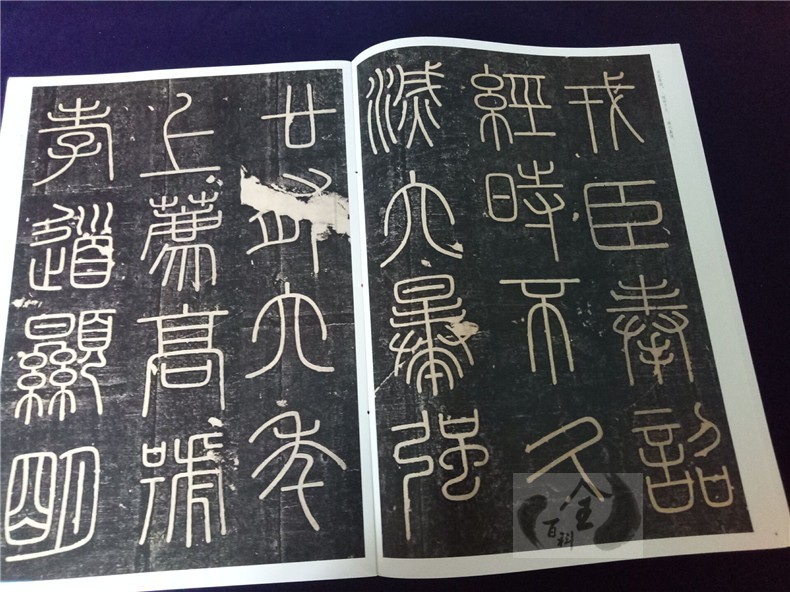 戎臣奉詔
經時不久
滅六暴強
廿有六年
上薦高號
孝道顯明
全百科